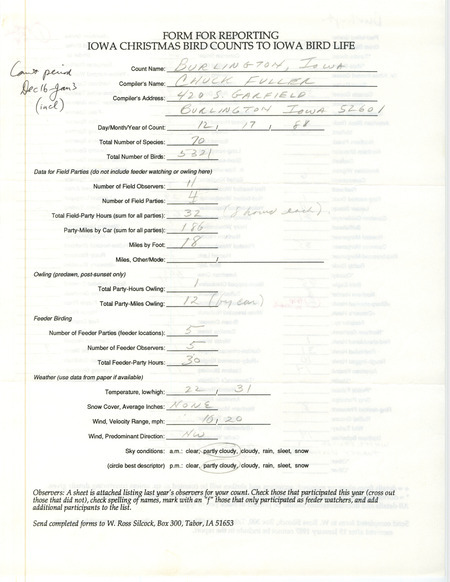 FORM FOR REPORTING
IOWA CHRISTMAS BIRD COUNTS TO IOWA BIRD LIFE
Count period
Dec 16-Jan 3
(incl)
Count Name: BURLINGTON, IOWA
Compiler's Name: CHUCK FULLER
Compiler's Address: 420 S. GARFIELD
BURLINGTON IOWA 52601
Day/Month/Year of Count: 12, 17, 88
Total Number of Species: 70
Total Number of Birds: 5321
Data for Field Parties (do not include feeder watching or owling here)
Number of Field Observers: 11
Number of Field Parties: 4
Total Field-Party Hours (sum for all parties): 32 (8 hours each)
Party-Miles by Car (sum for all parties): 186
Miles by Foot: 18
Miles, Other/Mode: /
Owling (predawn, post-sunset only)
Total Party-Hours Owling: 1
Total Party-Miles Owling: 12 (by car)
Feeder Birding
Number of Feeder Parties (feeder locations): 5
Number of Feeder Observers: 5
Total Feeder-Party Hours: 30
Weather (use data from paper if available)
Temperature, low/high: 22, 31
Snow Cover, Average Inches: NONE
Wind, Velocity Range, mph: 10, 20
Wind, Predominant Direction: NW
Sky conditions: a.m.: clear, partly cloudy, cloudy, rain, sleet, snow
(circle best descriptor) p.m.: clear, partly cloudy, cloudy, rain, sleet, snow
Observers: A sheet is attached listing last year's observers for your count. Check those that participated this year (cross out
those that did not), check spelling of names, mark with an "f" those that only participated as feeder watchers, and add
additional participants to the list.
Send completed forms to W. Ross Silcock, Box 300, Tabor, IA 51653